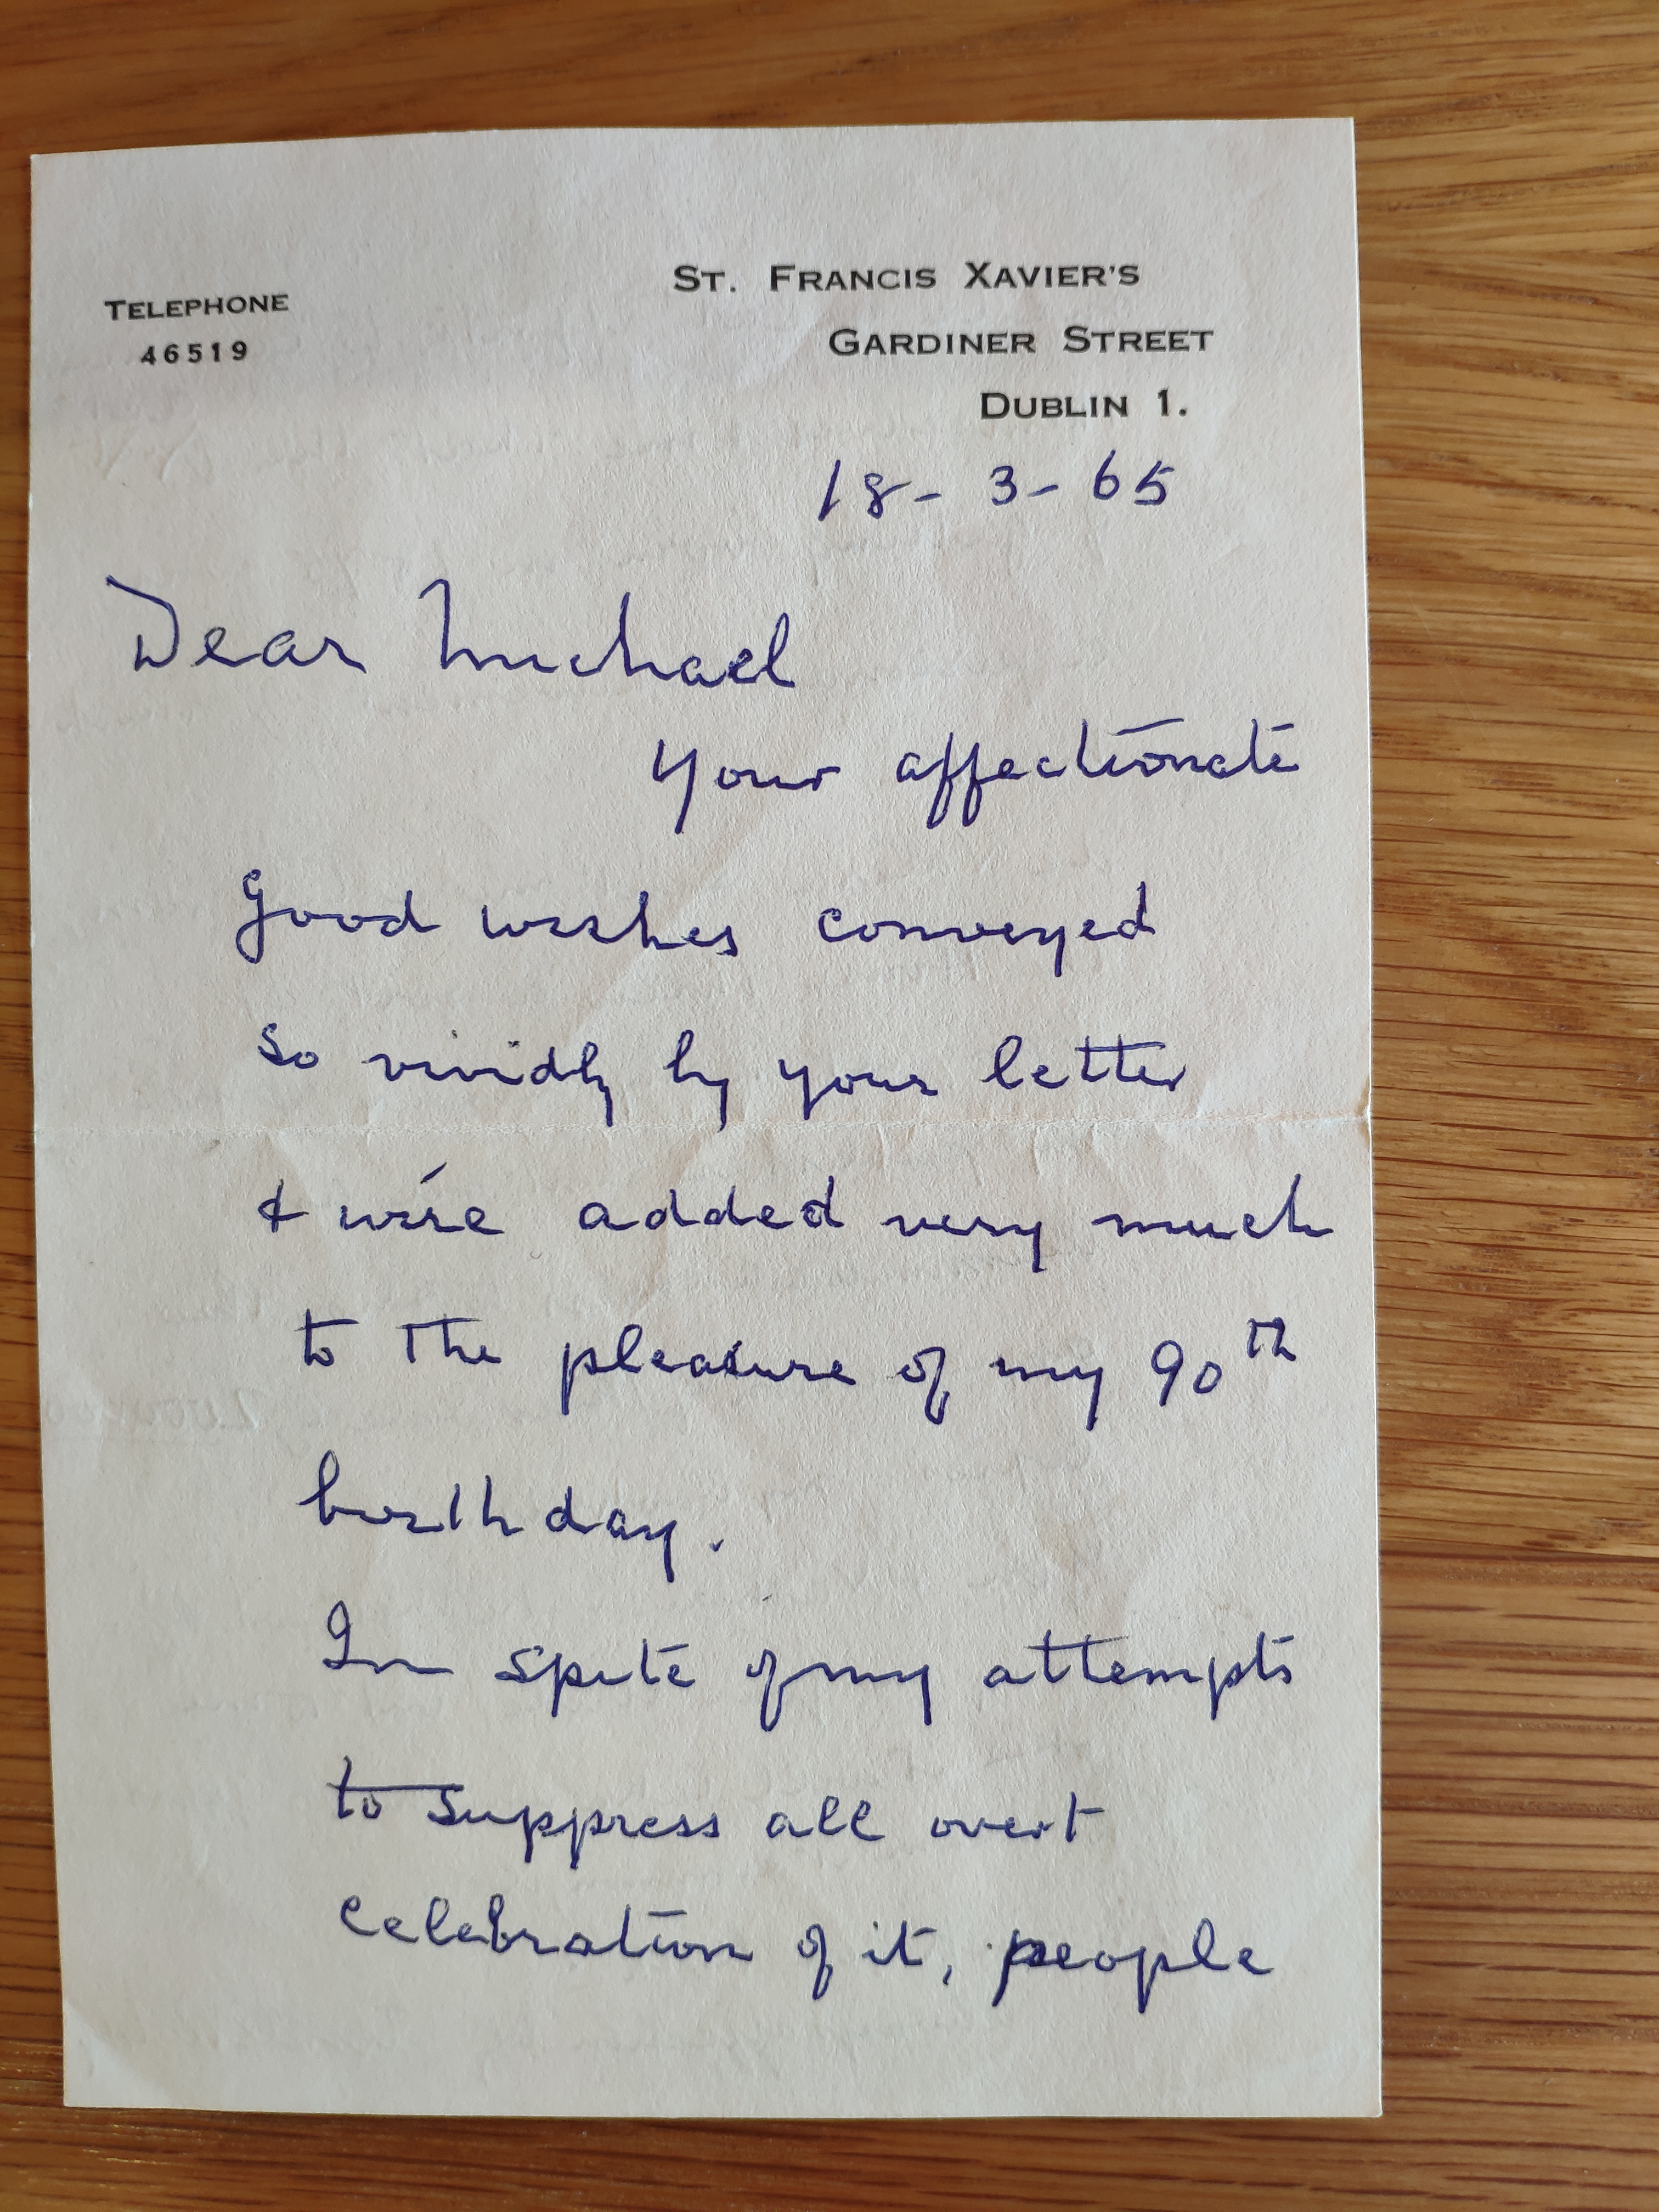 TELEPHONE
46519
ST. FRANCIS XAVIER'S
GARDINER STREET
DUBLIN 1.
18-3-65
Dear Michael
Your affectionate
good wishes conveyed
so vividly by your letter
& wire added very much
to the pleasure of my 90th
birthday.
In spite of my attempts
to suppress all overt
celebration of it, people